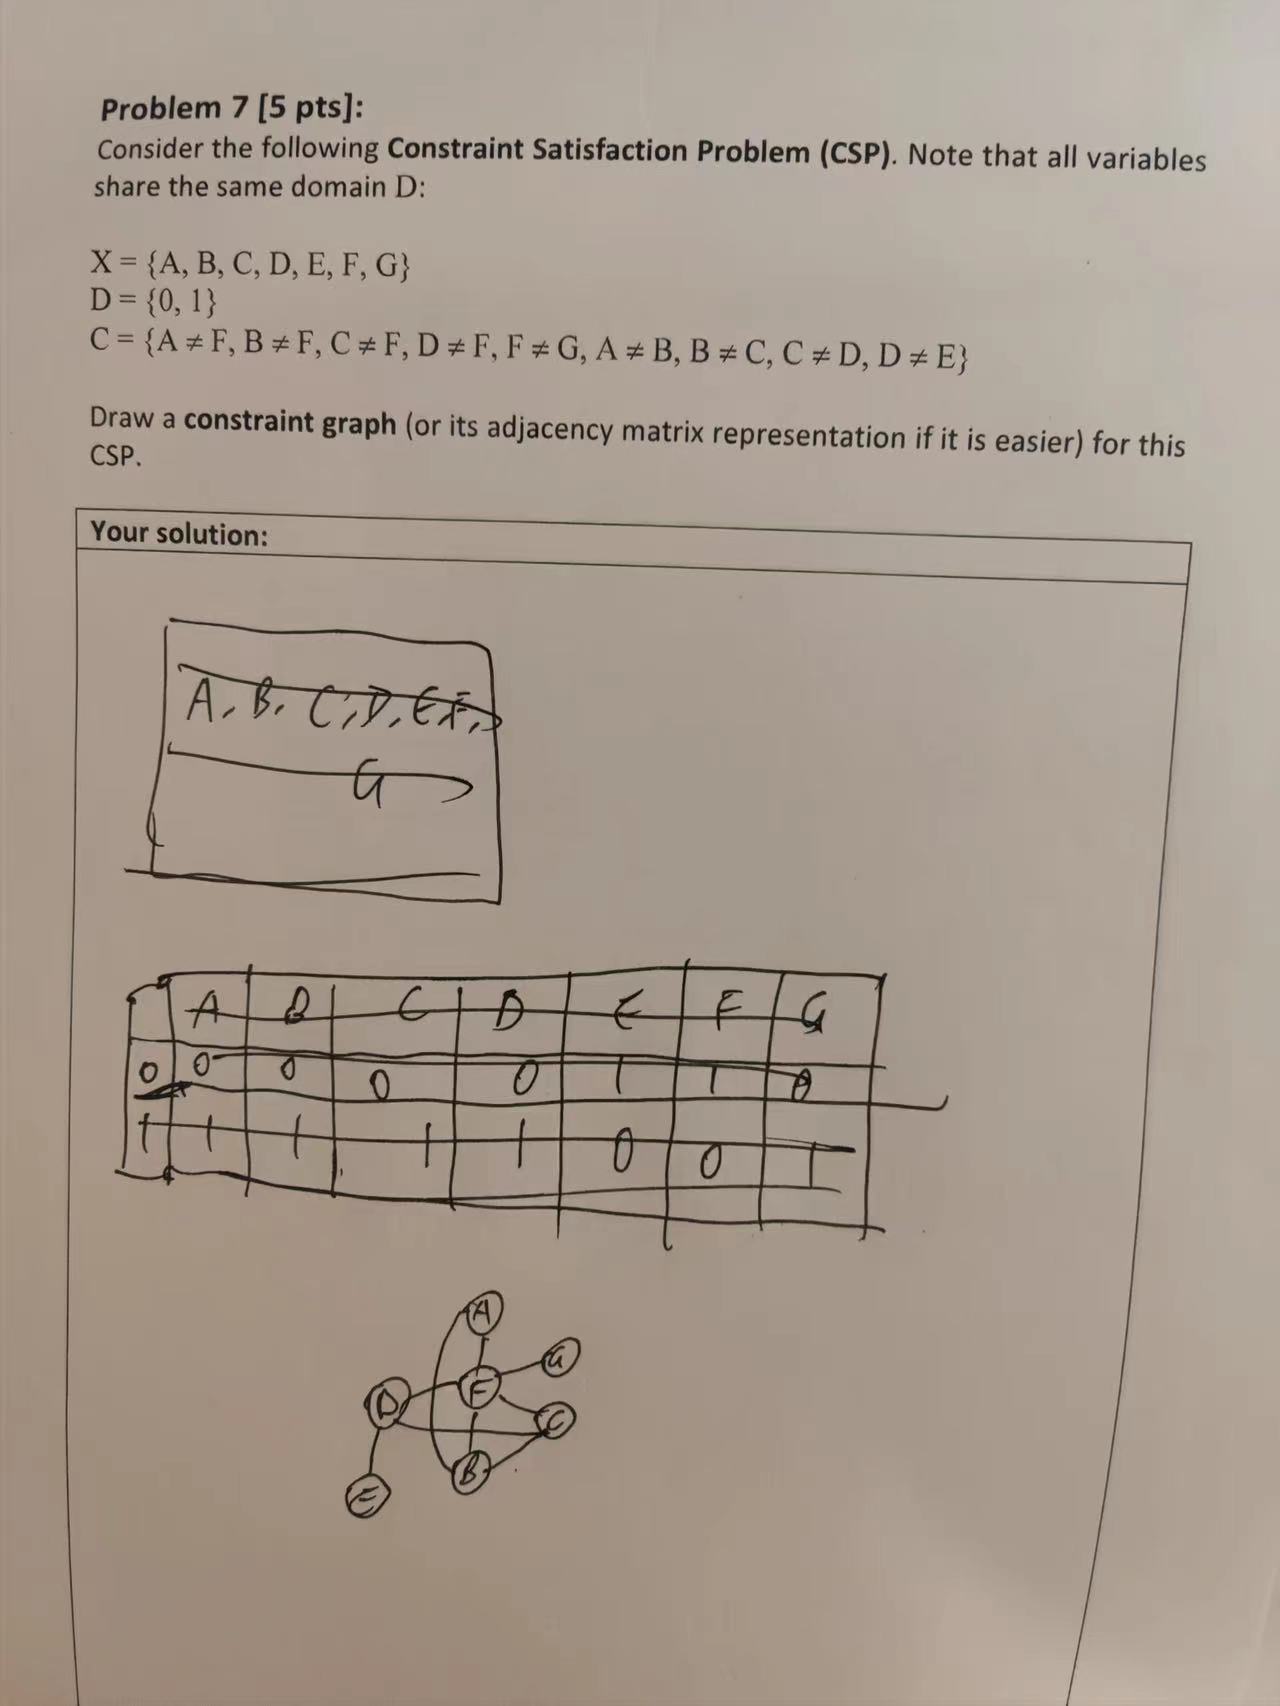 Problem 7 [5 pts]:
Consider the following Constraint Satisfaction Problem (CSP). Note that all variables
share the same domain D:
X = {A, B, C, D, E, F, G}
D = {0, 1}
C = {A ≠ F, B ≠ F, C ≠ F, D ≠ F, F ≠ G, A ≠ B, B ≠ C, C ≠ D, D ≠ E}
Draw a constraint graph (or its adjacency matrix representation if it is easier) for this
CSP.
Your solution:
A, B, C, D, E, F,
G
A B C D E F G
0 0 0 0 0 1 1 0
1 1 1 1 1 0 0 1
A
G
F
D
C
B
E